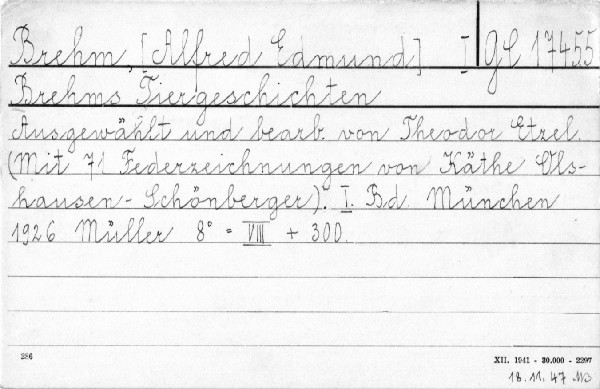 Brehm, [Alfred Edmund] I Gl 17455
Brehms Tiergeschichten
Ausgewählt und bearb. von Theodor Etzel.
(Mit 71 Federzeichnungen von Käthe Ols-
hausen-Schönberger). I. Bd. München
1926 Müller 8° = VIII + 300.
286
XII. 1941 - 30.000 - 2297
18.11.47